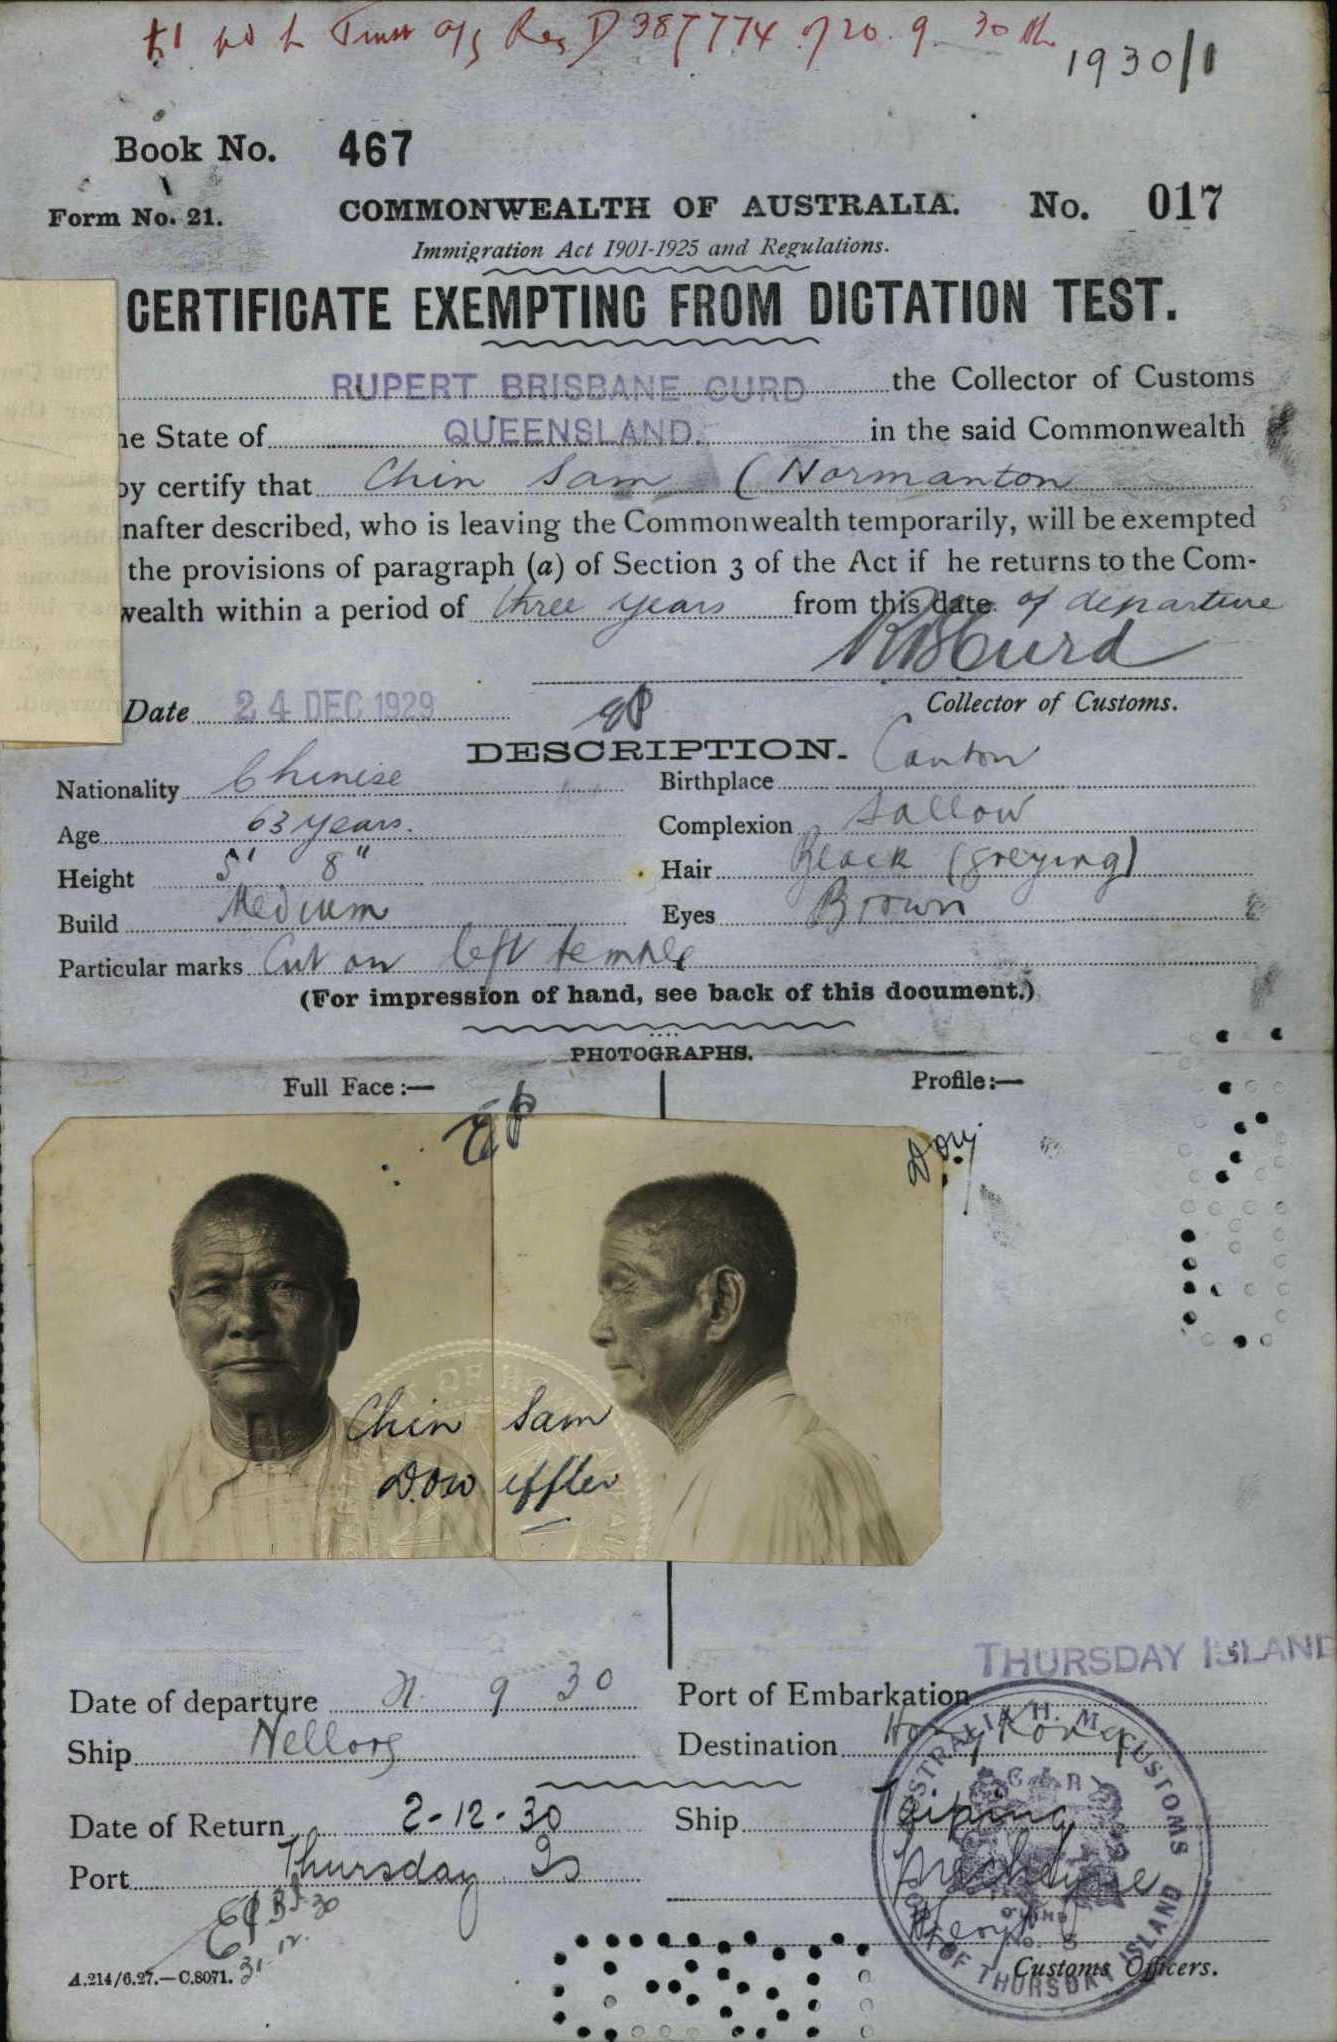 £1 pd to Trust a/c Rec D 387774 of 20.9.30
1930/1
Book No. 467
Form No. 21. COMMONWEALTH OF AUSTRALIA. No. 017
Immigration Act 1901-1925 and Regulations.
CERTIFICATE EXEMPTING FROM DICTATION TEST.
RUPERT BRISBANE CURD the Collector of Customs
he State of QUEENSLAND. in the said Commonwealth
by certify that Chin Sam (Normanton
nafter described, who is leaving the Commonwealth temporarily, will be exempted
the provisions of paragraph (a) of Section 3 of the Act if he returns to the Com-
wealth within a period of three years from this date of departure
RBCurd
Date 24 DEC 1929 Collector of Customs.
DESCRIPTION.
Nationality Chinese Birthplace Canton
Age 63 years. Complexion Sallow
Height 5' 8" Hair Black (greying)
Build Medium Eyes Brown
Particular marks Cut on left temple
(For impression of hand, see back of this document.)
PHOTOGRAPHS.
Full Face:— Profile:—
Chin Sam
THURSDAY ISLAND
Date of departure 9 30 Port of Embarkation
Ship Nellore Destination Hong Kong
Date of Return 2-12-30 Ship Taiping
Port Thursday Is
AUSTRALIA H. M. CUSTOMS
G R
Q'LAND
No. 5
PORT OF THURSDAY ISLAND
31.12.30
A.214/6.27.—C.8071. Customs Officers.